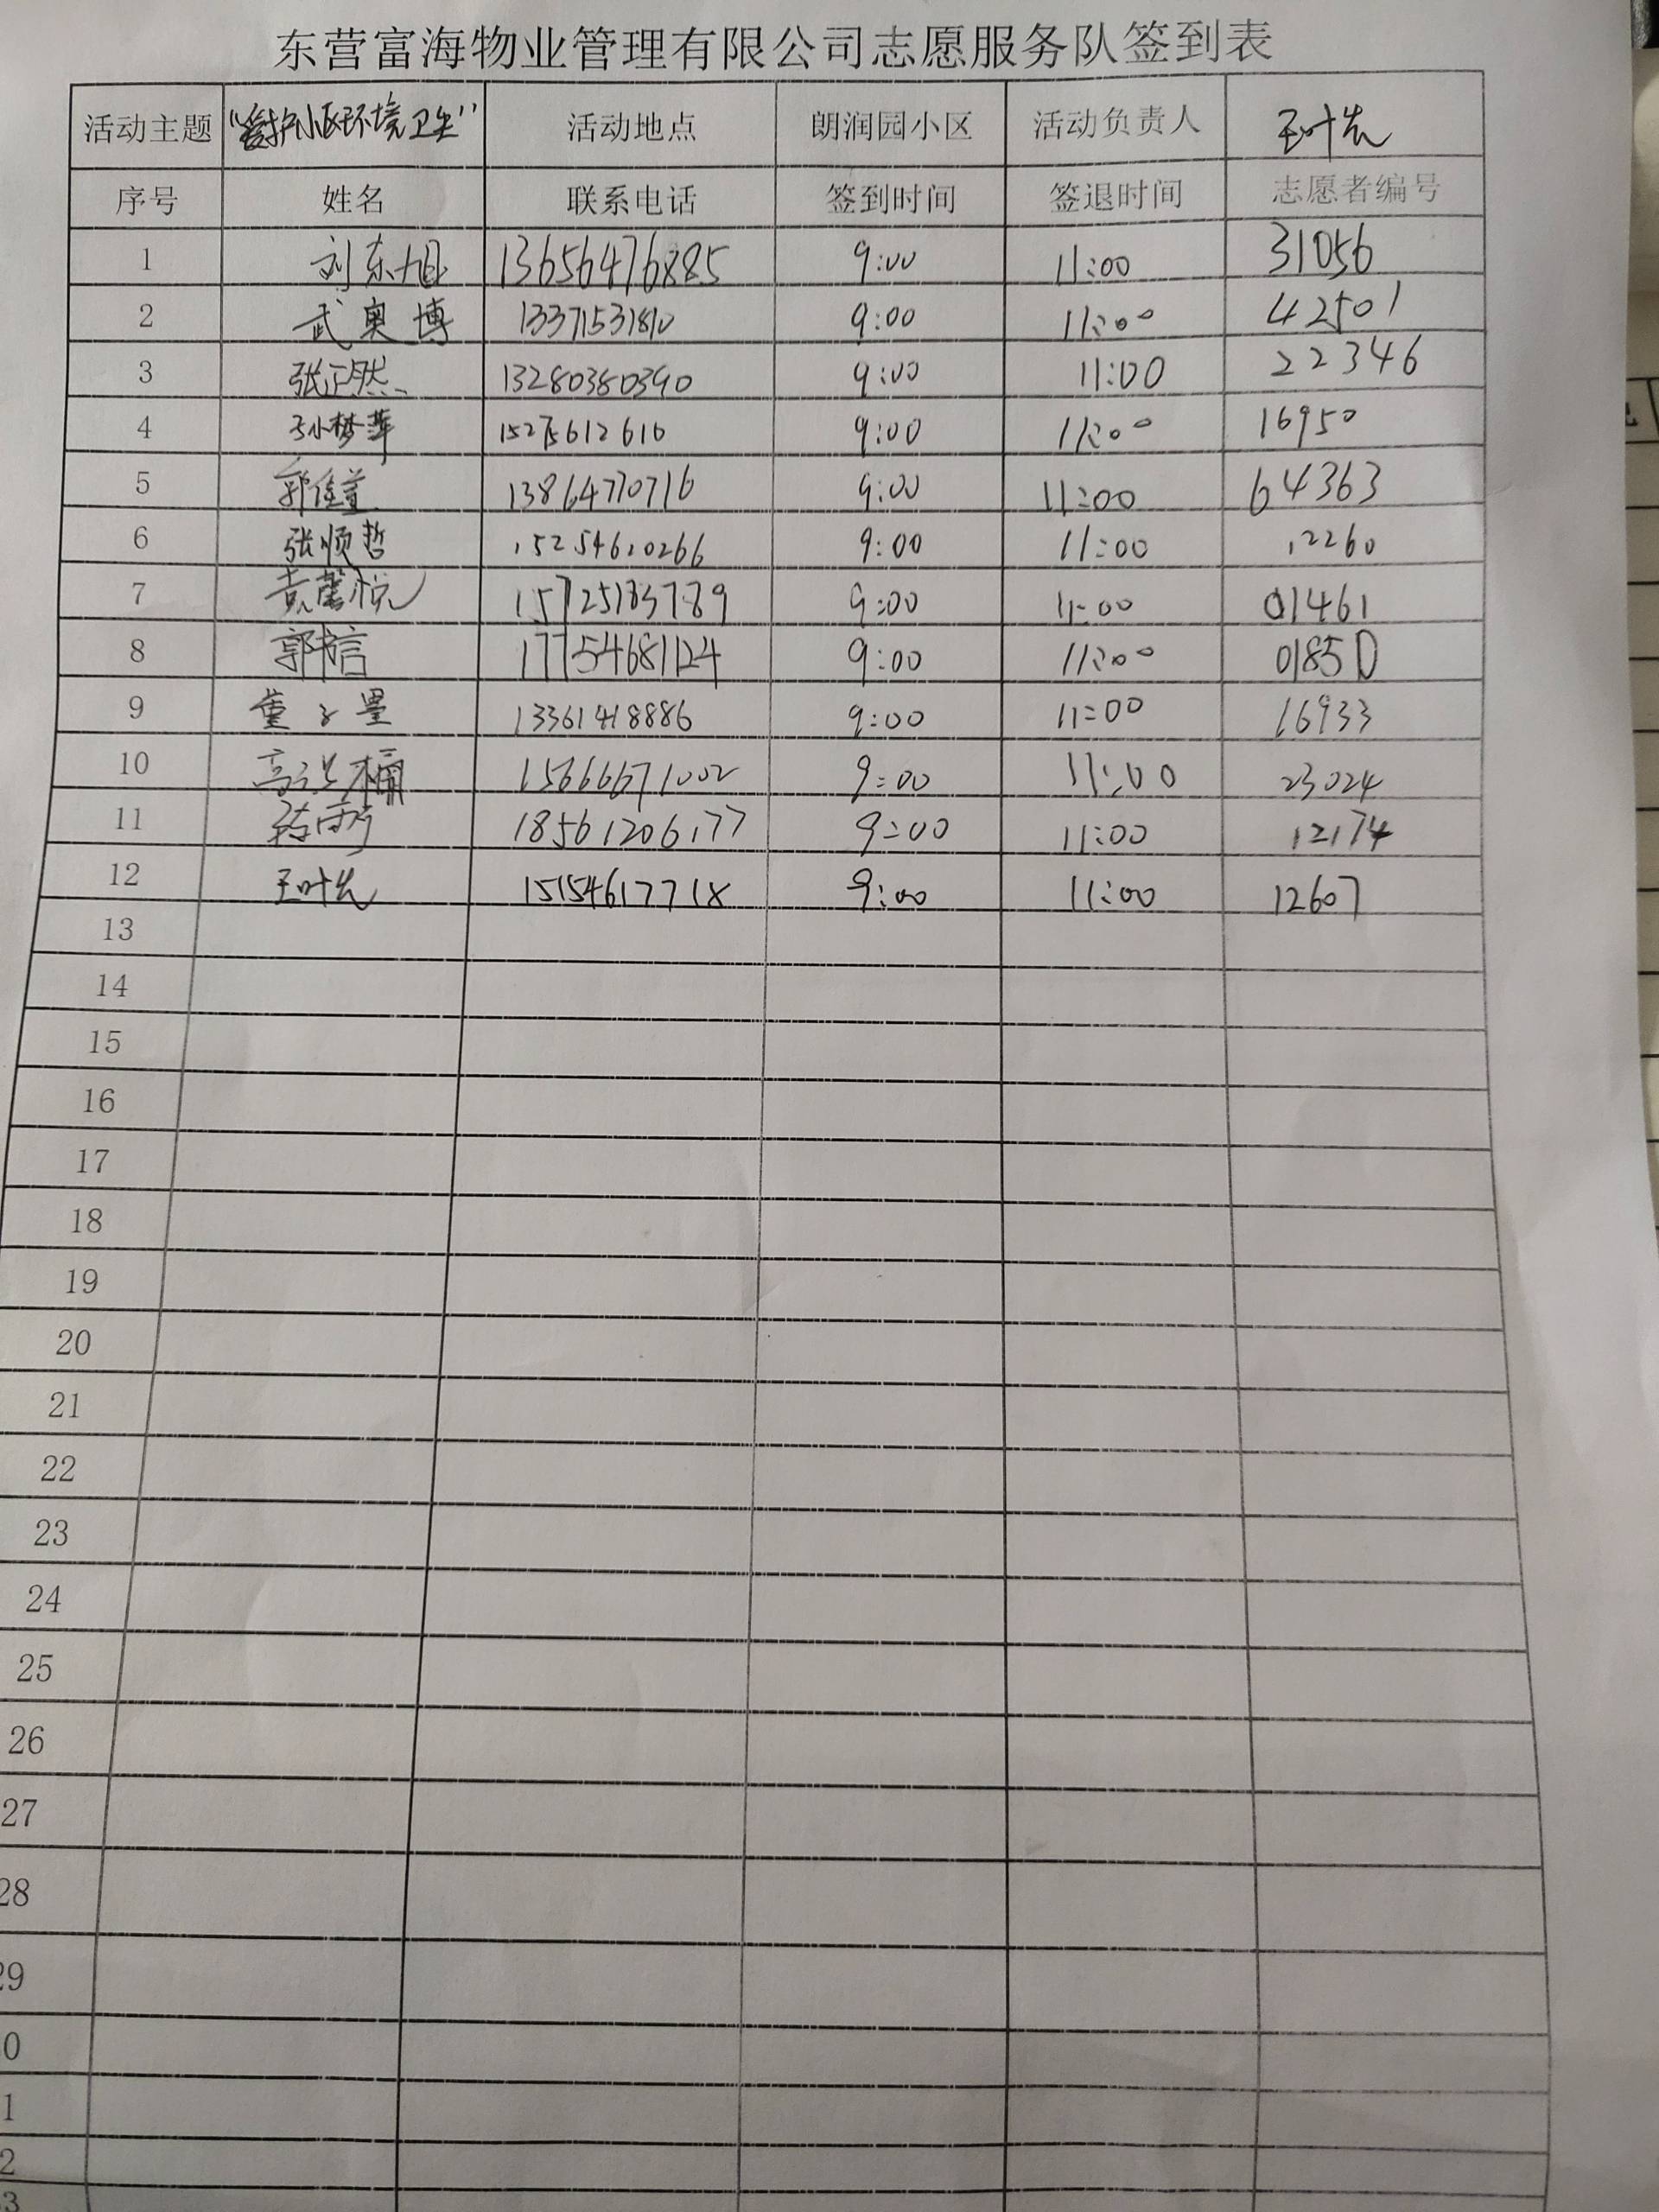 东营富海物业管理有限公司志愿服务队签到表
活动主题 "爱护小区环境卫生" 活动地点 朗润园小区 活动负责人 王叶先
序号 姓名 联系电话 签到时间 签退时间 志愿者编号
1 刘东旭 13656476885 9:00 11:00 31056
2 武奥博 13371531810 9:00 11:00 42501
3 张正然 13280380390 9:00 11:00 22346
4 孙梦萍 9:00 11:00 16950
5 13864770716 9:00 11:00 64363
6 张顺哲 15254610266 9:00 11:00 12260
7 袁馨悦 15725183789 9:00 11:00 01461
8 郭书言 17754681124 9:00 11:00 01850
9 董子墨 13361418886 9:00 11:00 16933
10 15666671002 9:00 11:00 23024
11 18561206177 9:00 11:00 12174
12 王叶先 15154617718 9:00 11:00 12607
13
14
15
16
17
18
19
20
21
22
23
24
25
26
27
28
29
0
1
2
3